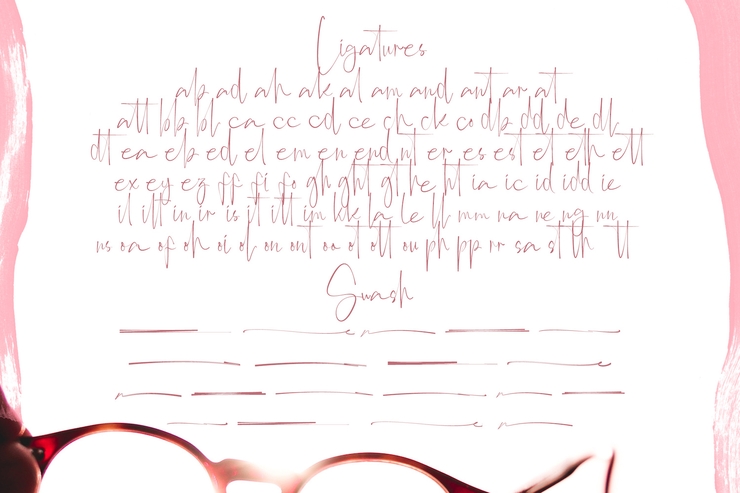 Ligatures
ab ad ah ak al am and ant ar at
att bb bl ca cc cd ce ch ck co db dd de dl
dt ea eb ed el em en end nt er es est et eth ett
ex ey ez ff fi fo gh ght gt he ht ia ic id idd ie
il ill in ir is it itt im kk la le ll mm na ne ng nn
ns oa of oh oi ol on ont oo ot ott ou ph pp rr sa st th tt
Swash